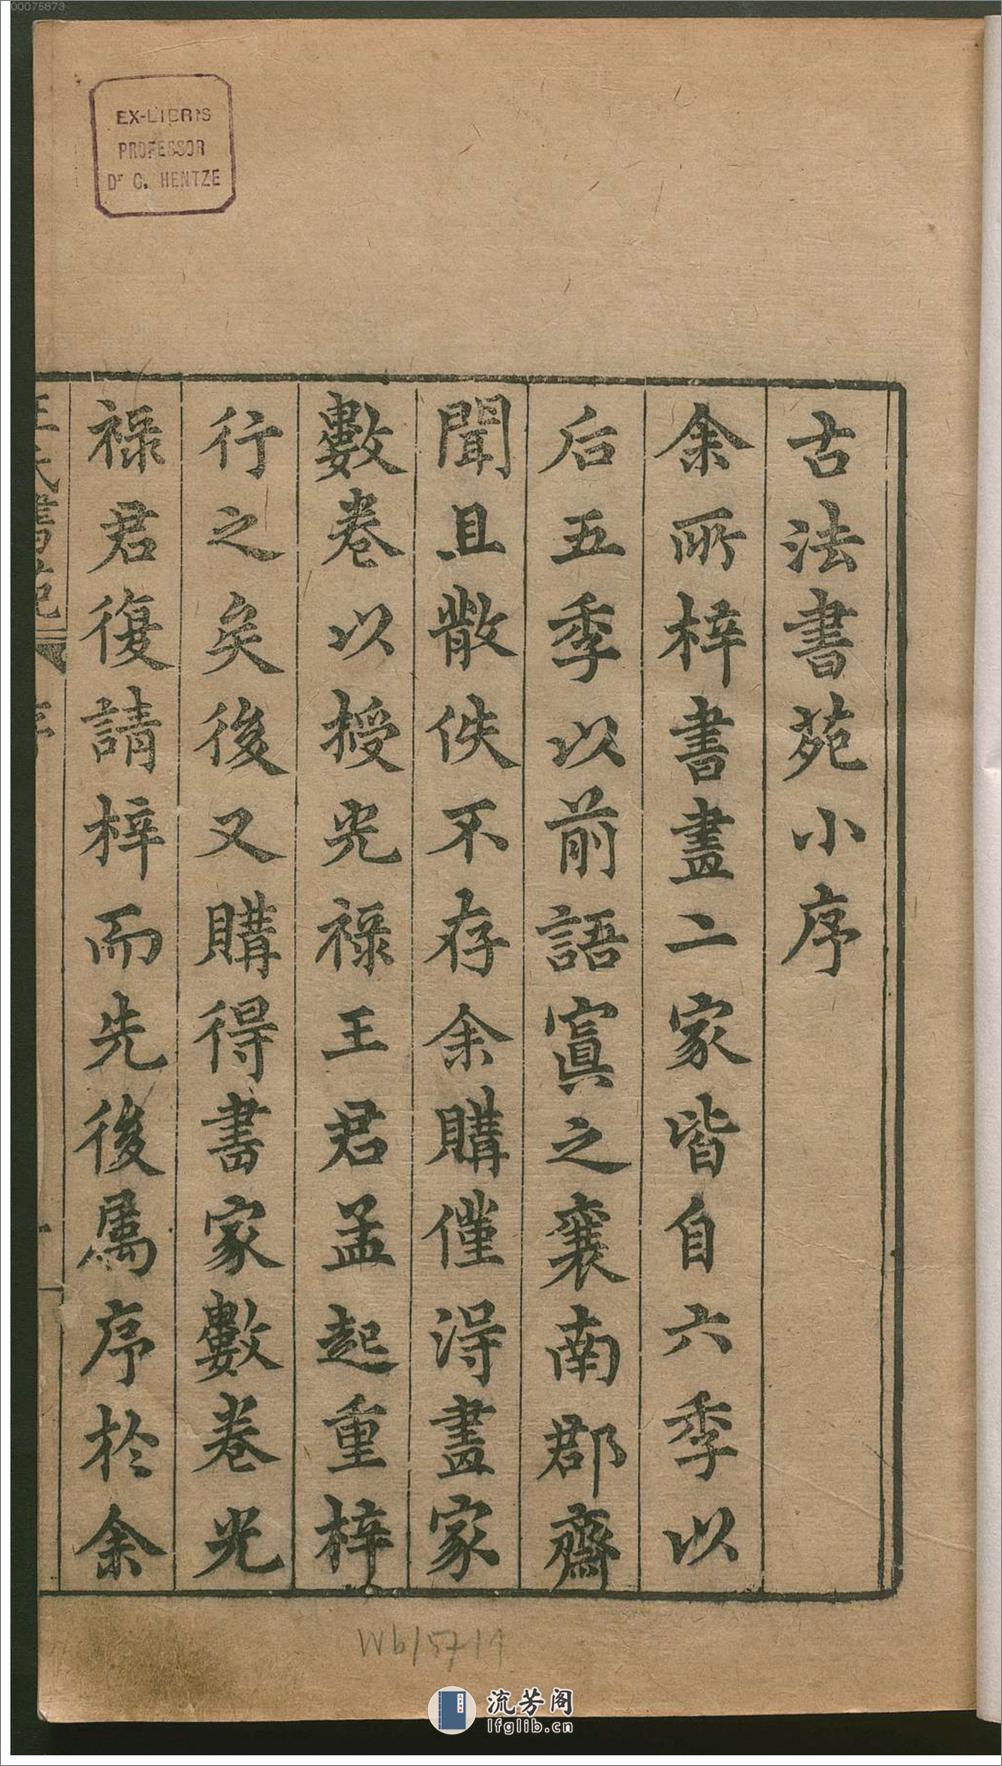 00075873
EX-LIBRIS
PROFESSOR
Dr C. HENTZE
古法書苑小序
余所梓書畫二家皆自六季以
后五季以前語寘之襄南郡齋
聞且散佚不存余購僅淂畫家
數卷以授光祿王君孟起重梓
行之矣後又購得書家數卷光
祿君復請梓而先後屬序於余
王氏書苑
序
一
流芳阁
lfglib.cn